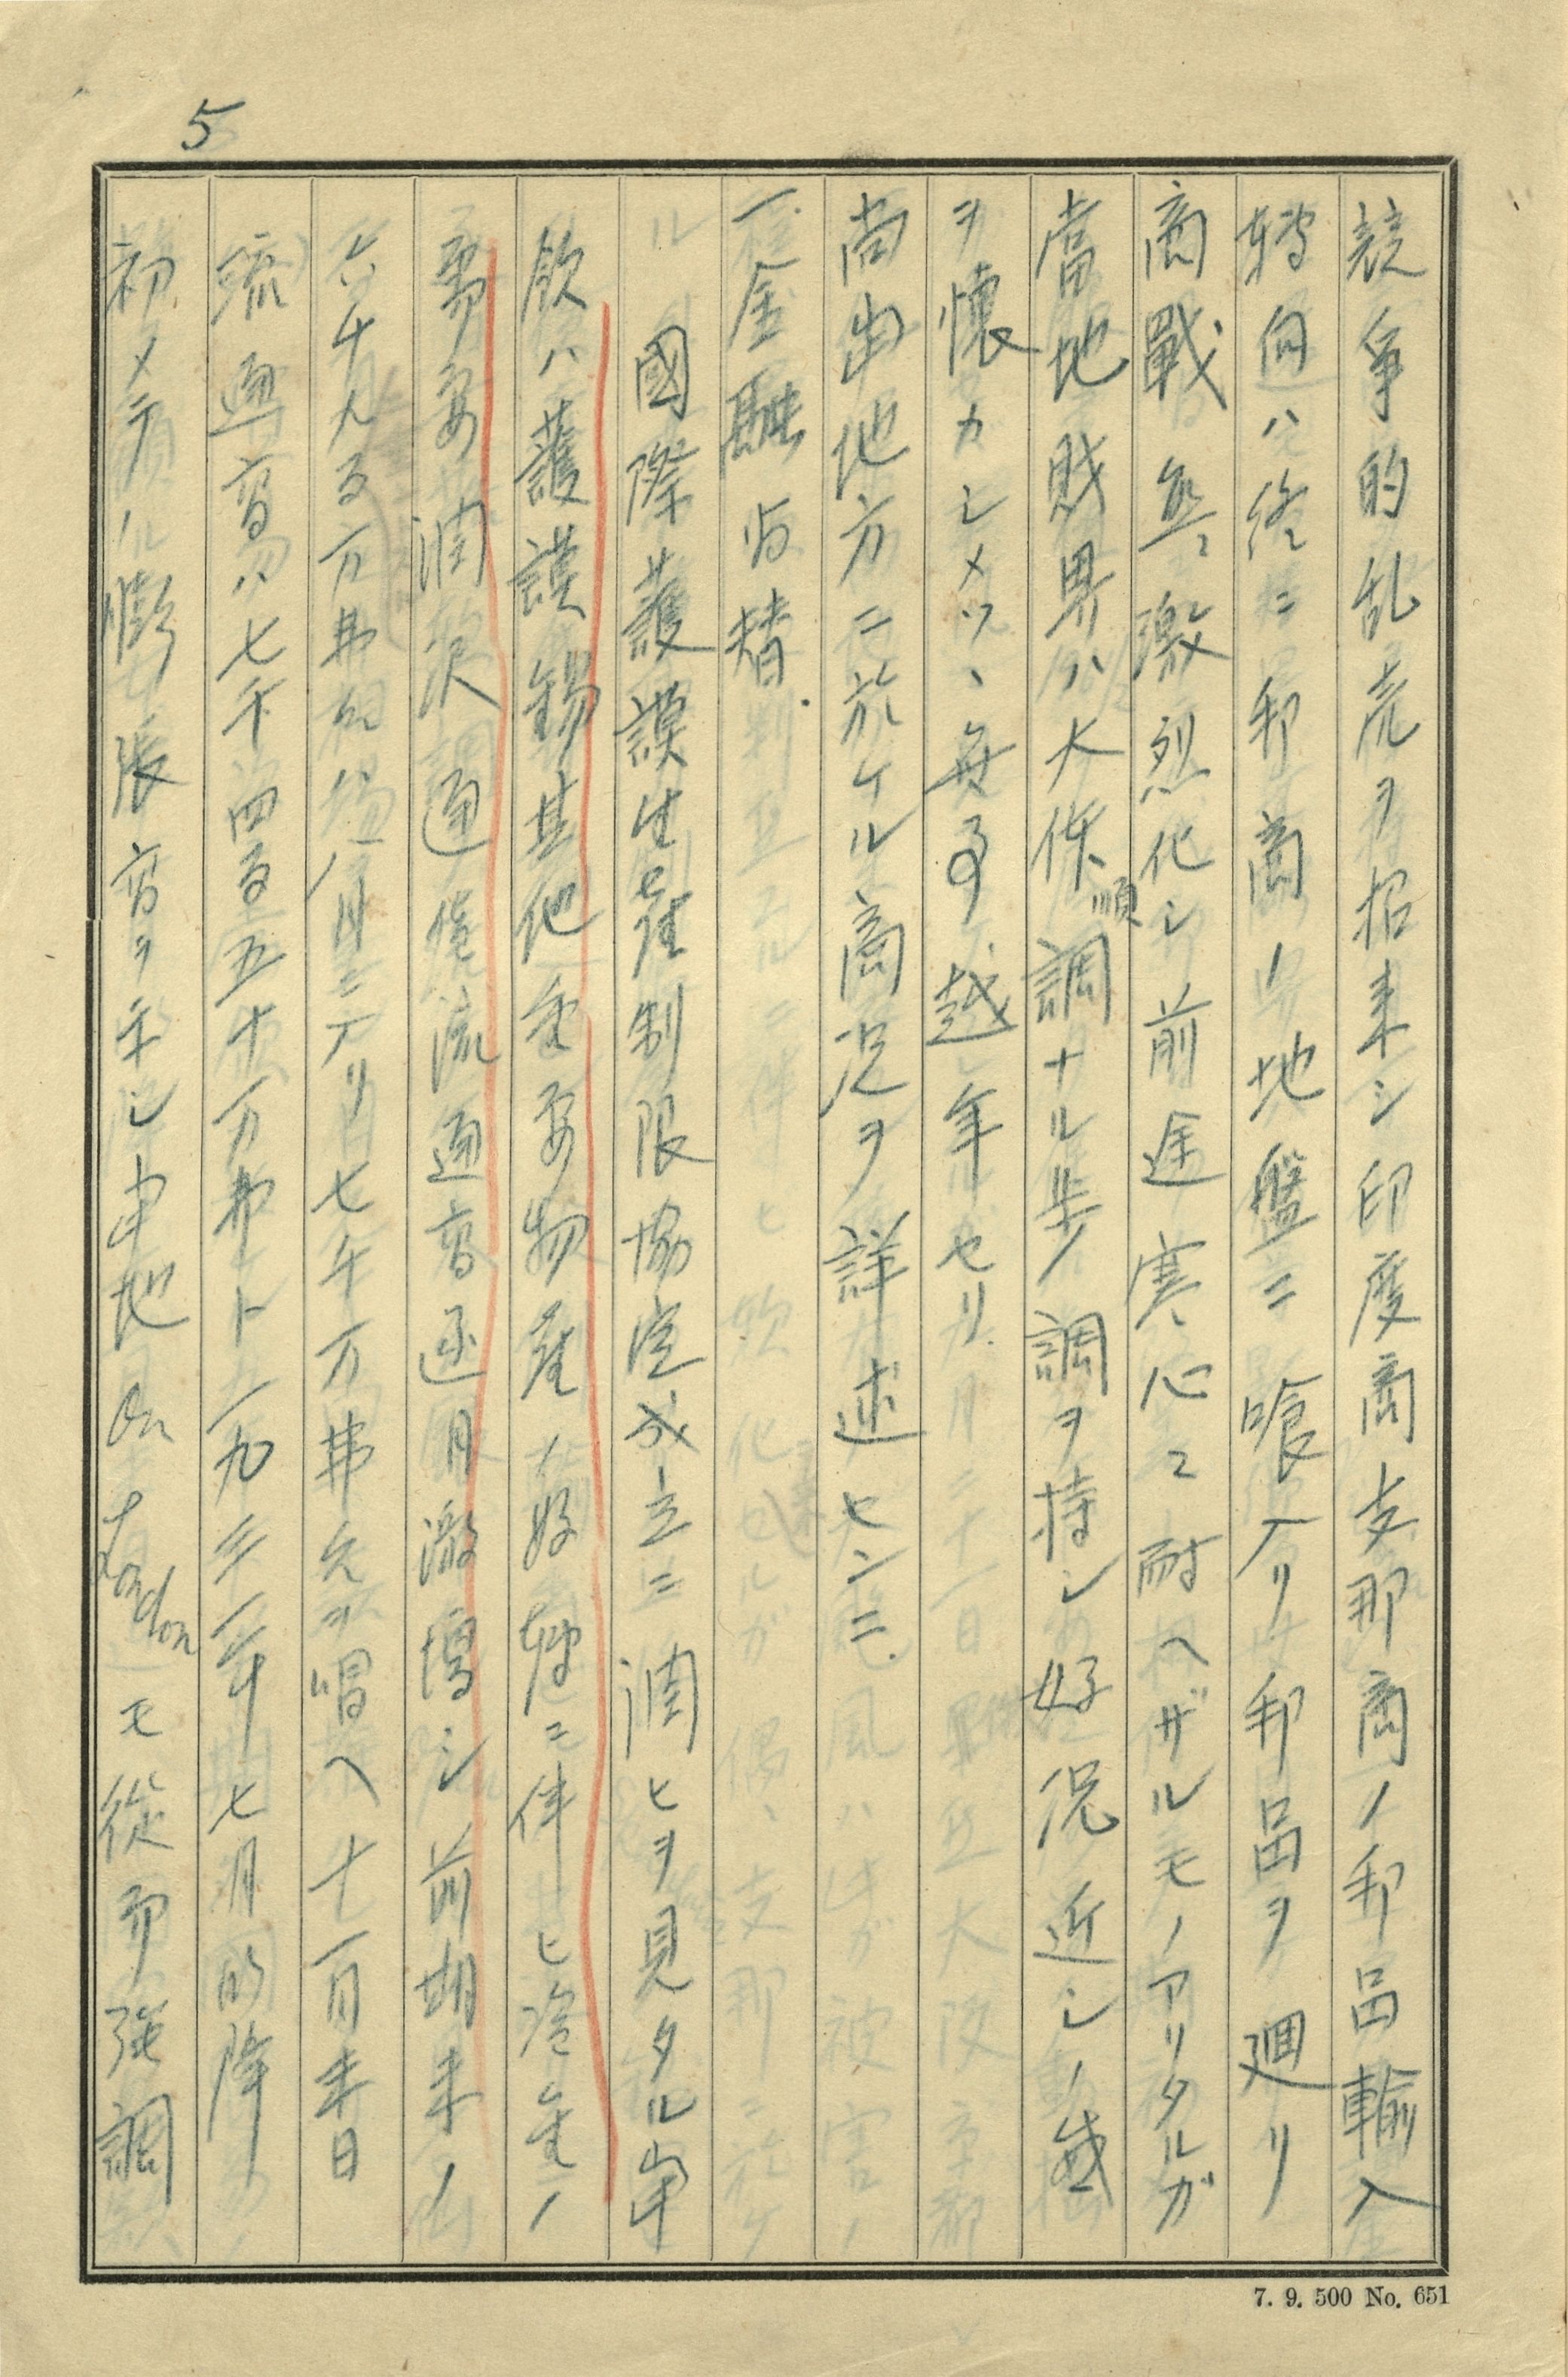 5
競争的乱売ヲ招来シ印度商支那商ノ邦品輸入
轉向ハ終ニ邦商ノ地盤ニ喰入リ邦品ヲ廻リ
商戰益々激烈化シ前途寒心ニ耐ヘザルモノアリタルガ
當地財界ハ大体順調ナル歩調ヲ持シ好況近シノ感
ヲ懐カシメツヽ無事越年セリ
尚当地方ニ於ケル商況ヲ詳述センニ
一、金融為替
國際護謨生産制限協定成立ニ潤ヒヲ見タル当
飲ハ護謨錫其他重要物産ノ好轉ニ伴ヒ資金ノ
需要潤沢通貨流通高逐月激増シ前期末ノ
六千九百万弗台ハ月ニ入リ七千万弗台ヲ唱ヘ十一月末日
流通高ハ七千四百五十万弗ト一九三一年七月以降
初メテノ膨張高ヲ示シ当地 on London モ従而強調
7. 9. 500 No. 651